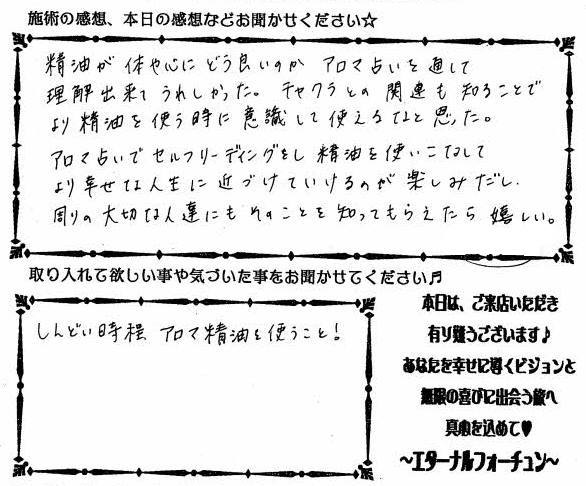 施術の感想、本日の感想などお聞かせください☆
精油が体や心にどう良いのか アロマ占いを通して
理解出来てうれしかった。チャクラとの関連も知ることで
より精油を使う時に意識して使えるなと思った。
アロマ占いでセルフリーディングをし精油を使いこなして
より幸せな人生に近づけていけるのが楽しみだし、
周りの大切な人達にもそのことを知ってもらえたら嬉しい。
取り入れて欲しい事や気づいた事をお聞かせてください♬
しんどい時程 アロマ精油を使うこと!
本日は、ご来店いただき
有り難うございます♪
あなたを幸せに導くビジョンと
無限の喜びに出会う旅へ
真心を込めて♥
〜エターナルフォーチュン〜